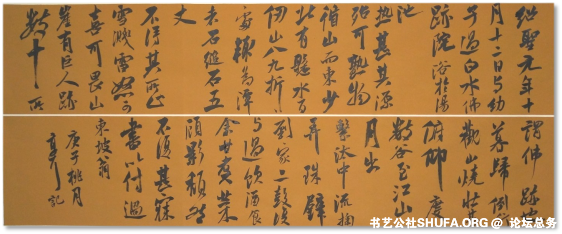 绍聖元年十
月十二日与幼
子过白水佛
跡院浴於湯
池
热甚其源
殆可熟物
循山而東少
北有懸水百
仞山八九折折
處輒為潭
石缒石五
丈
不得其所止
雪濺雷怒可
喜可畏山
崖有巨人跡
数十所
謂佛跡也
暮歸倒行
觀山燒壮甚
俯仰度
数谷至江山
月出
擊汰中流掬
弄珠璧
到家二鼓復
与過飲酒食
余甘煮菜
顾影頹然
不復甚寐
書以付過
東坡翁
庚子桃月
记
书艺公社SHUFA.ORG @ 论坛总务